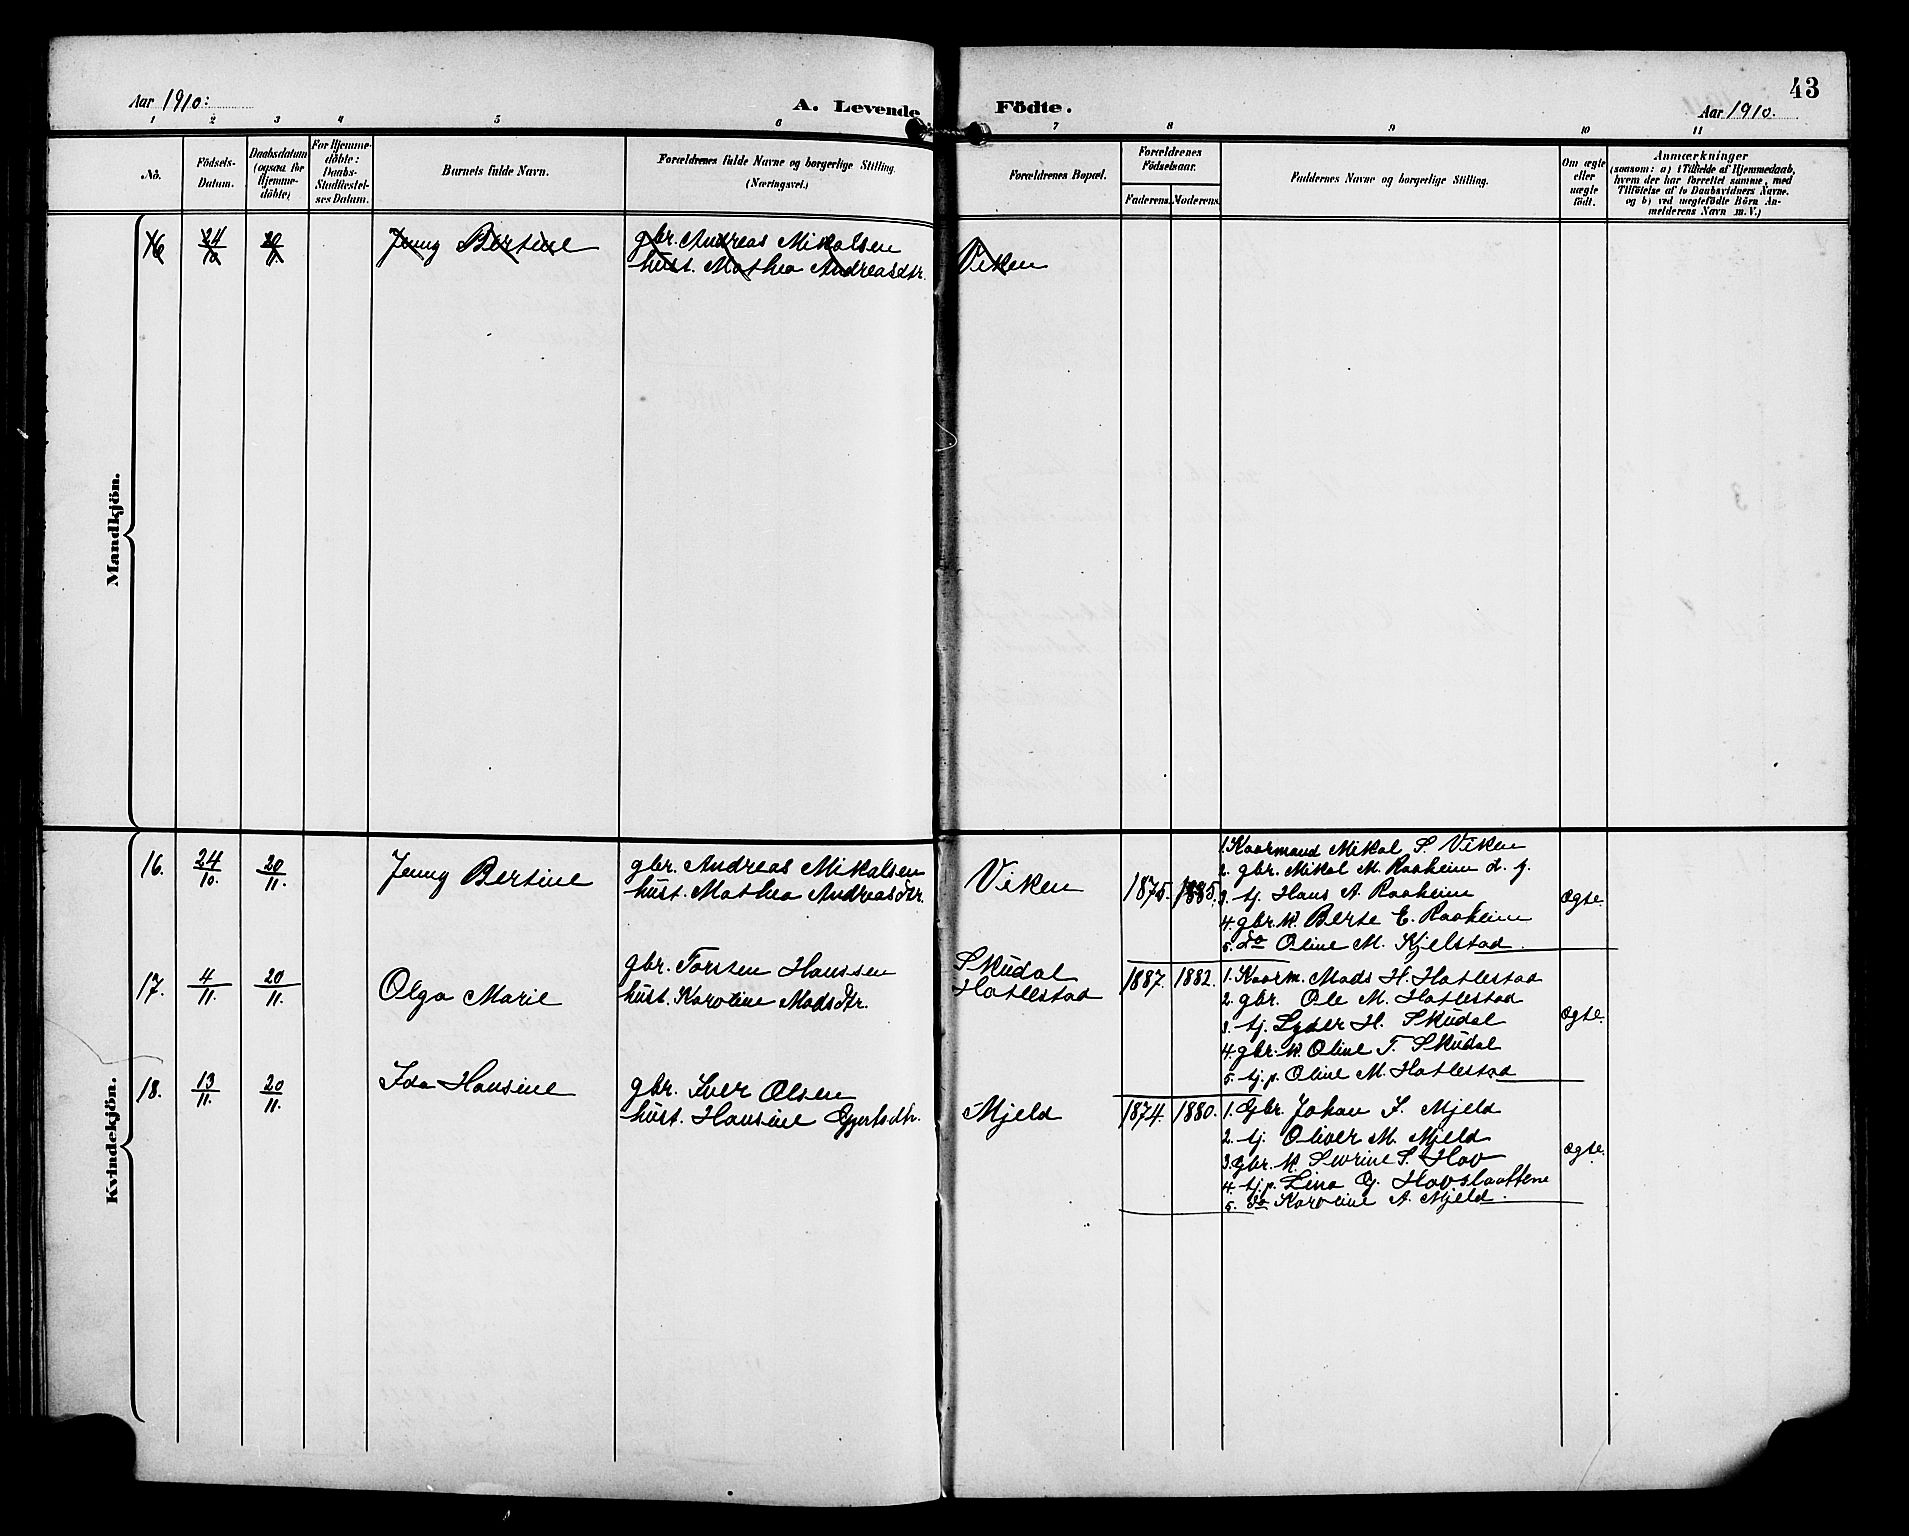 43
Aar 1910:
A. Levende
Födte.
Aar 1910.
1 2 3 4 5 6 7 8 9 10 11
No.
Födsels-
Datum.
Daabsdatum
(ogsaa for
Hjemme-
döbte)
For Hjemme-
döbte:
Daabs-
Stadfæstel-
ses Datum.
Barnets fulde Navn.
Forældrenes fulde Navne og borgerlige Stilling.
(Næringsvei.)
Forældrenes Bopæl.
Forældrenes
Födselsaar.
Faderens. Moderens.
Faddernes Navne og borgerlige Stilling.
Om ægte
eller
uægte
födt.
Anmærkninger
(saasom: a) i Tilfælde af Hjemmedaab,
hvem der har forrettet samme, med
Tilföielse af to Daabsvidners Navne.
og b) ved uægtefödte Börn An-
melderens Navn m. V.)
Mandkjön.
16 24/10 20/11. Jenny Bertine
gbr. Andreas Mikalsen
hust. Mathea Andreasdtr.
Viken
Kvindekjön.
16. 24/10. 20/11. Jenny Bertine
gbr. Andreas Mikalsen
hust. Mathea Andreasdtr.
Viken
1875. 1885.
1. Kaarmand Mikal S. Viken
2. gbr. Mikal M. Raaheim d. y.
3. tj. Hans A. Raaheim
4. gbr. k. Berte E. Raaheim
5. do Oline M. Kjelstad.
ægte.
17. 4/11. 20/11. Olga Marie
gbr. Torsten Hanssen
hust. Karoline Madsdtr.
Skudal
Hatlestad
1887. 1882.
1. Kaarm. Mads H. Hatlestad
2. gbr. Ole M. Hatlestad
3. tj. Lyder H. Skudal
4. gbr. k. Oline T. Skudal
5. tj. p. Oline M. Hatlestad
ægte.
18. 13/11. 20/11. Ida Hansine
gbr. Iver Olsen
hust. Hansine Gjertsdtr.
Mjeld
1874. 1880.
1. Gbr. Johan I. Mjeld
2. tj. Oliver M. Mjeld
3. gbr. k. Sevrine S. Hov
4. tj. p. Lina G. Hovslaattene
5. do Karoline A. Mjeld.
ægte.